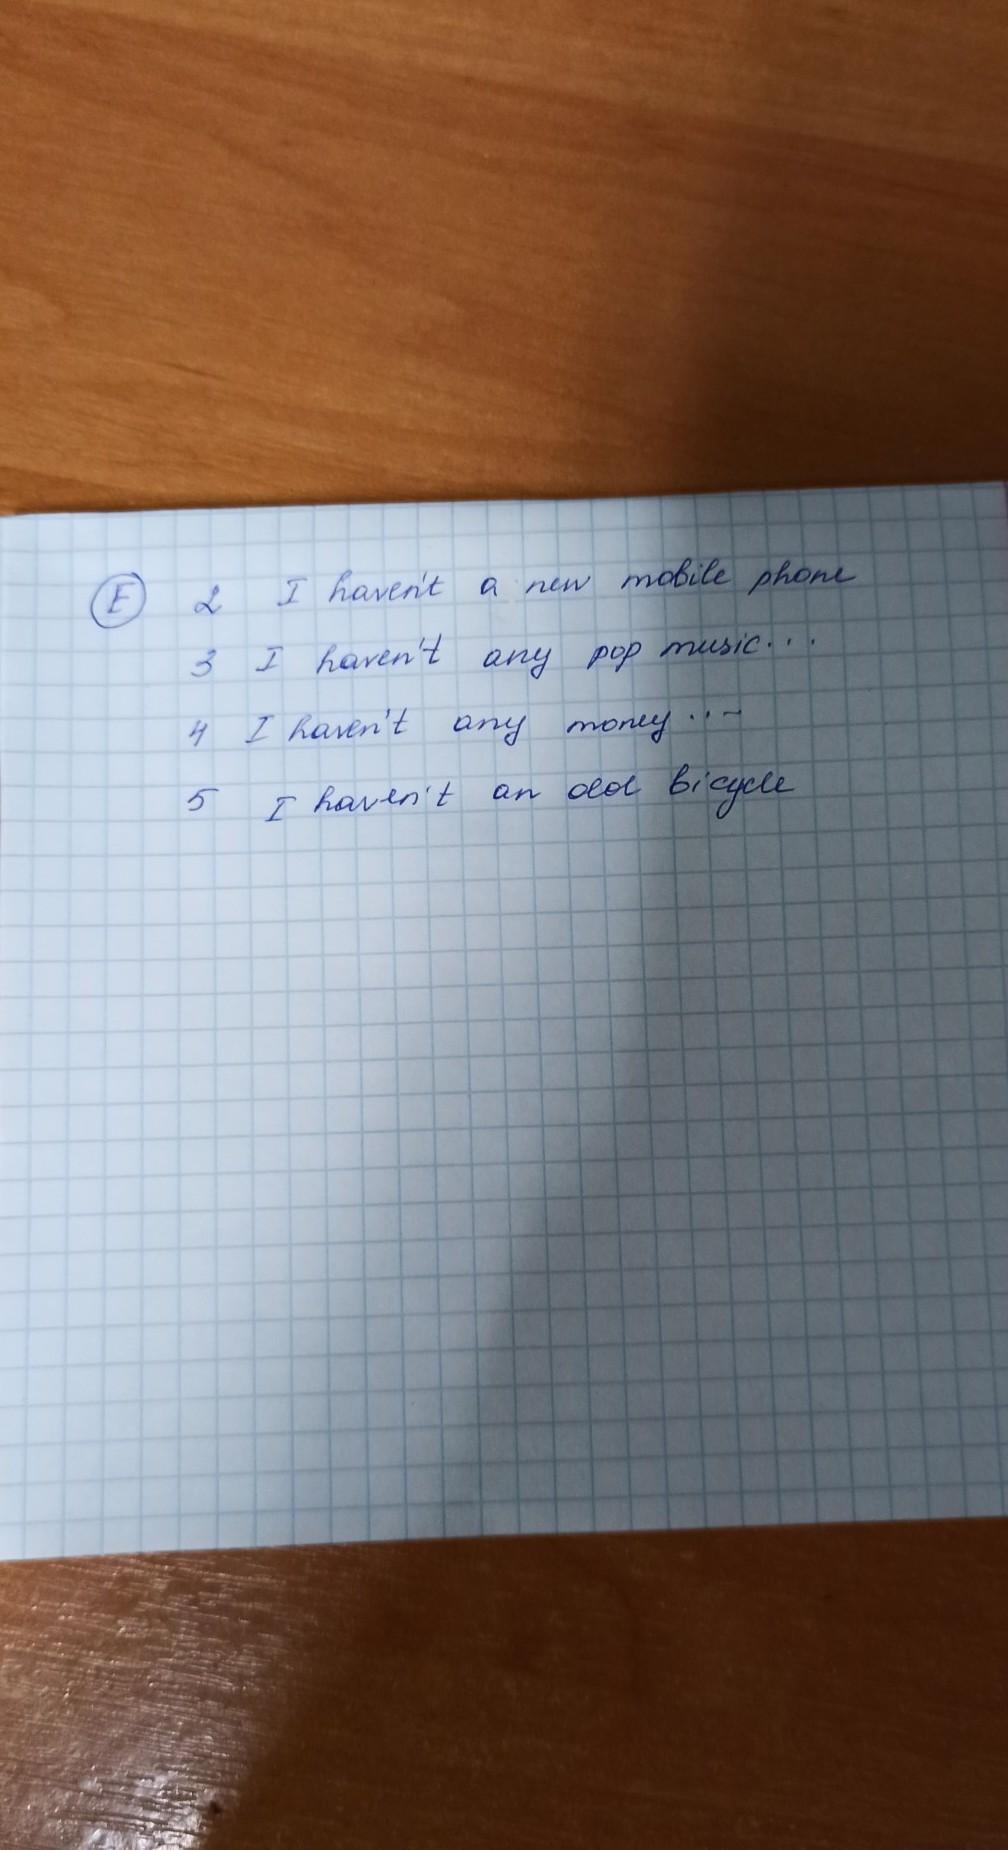 E 2 I haven't a new mobile phone
3 I haven't any pop music...
4 I haven't any money...
5 I haven't an old bicycle